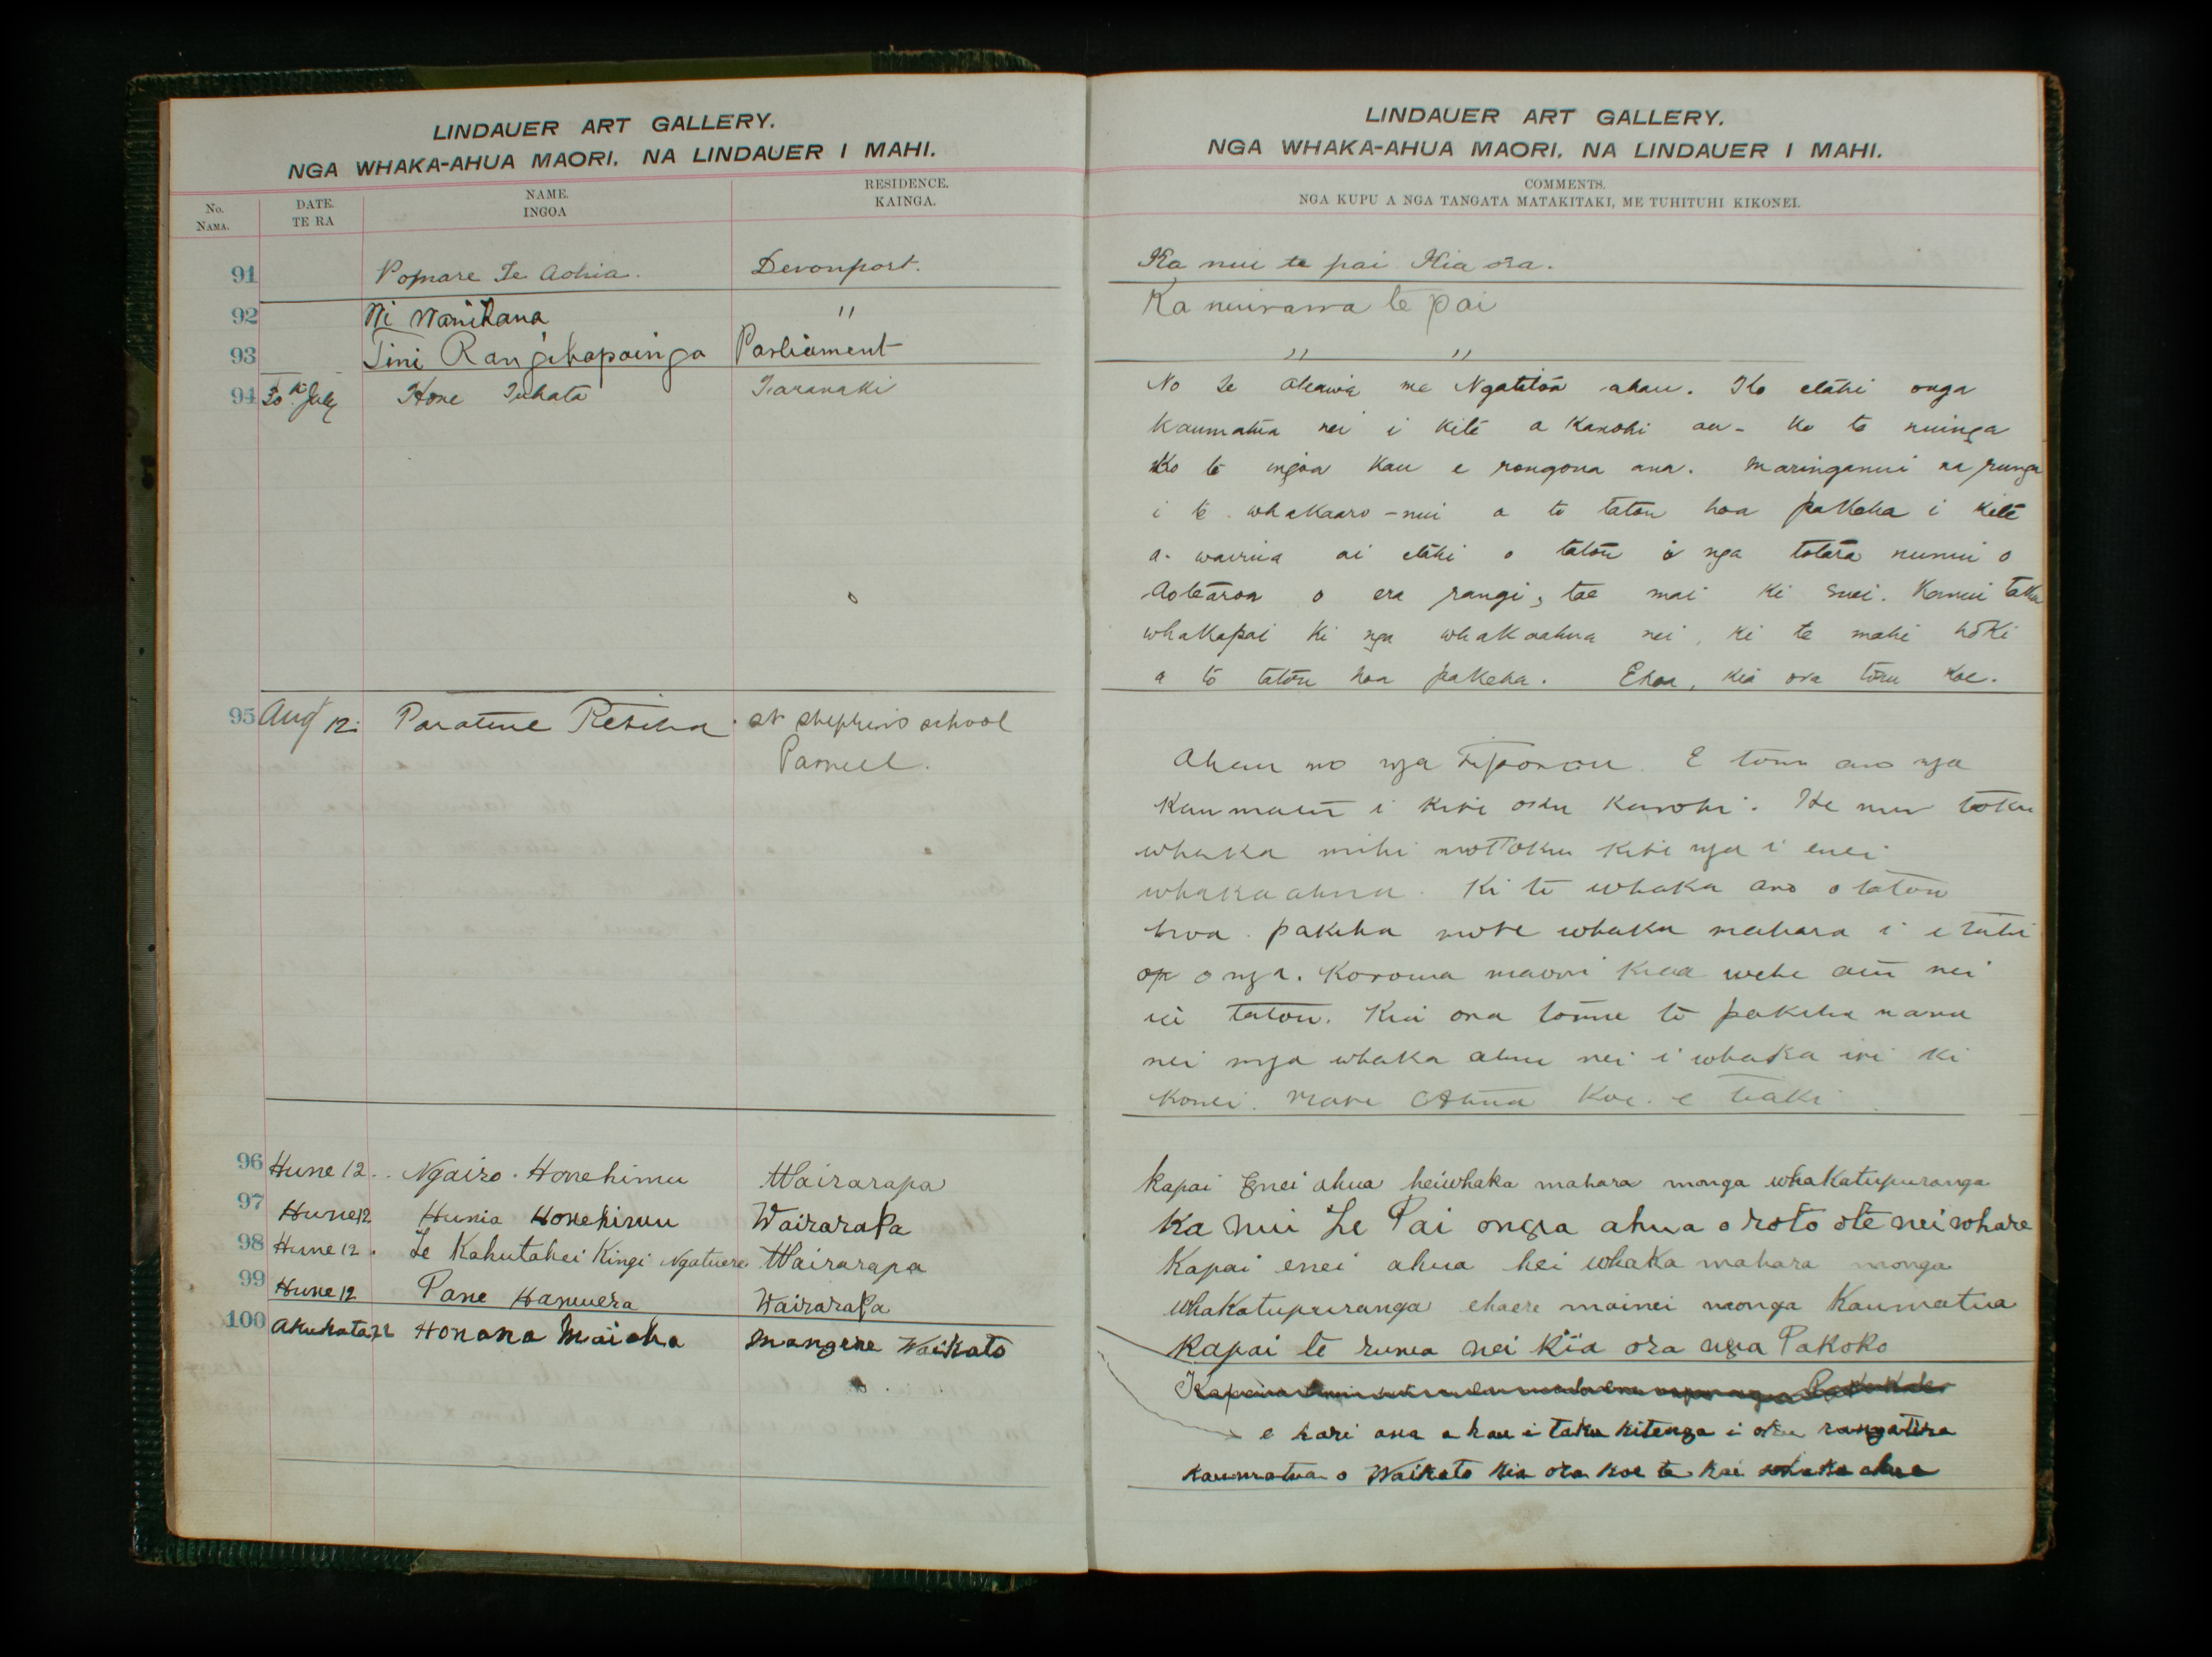 LINDAUER ART GALLERY.
NGA WHAKA-AHUA MAORI, NA LINDAUER I MAHI.
No. NAMA. DATE. TE RA NAME. INGOA RESIDENCE. KAINGA.
91 Pomare Te Aohia. Devonport.
92 Wi Wanikana "
93 Tini Rangikapainga Parliament
94 30th July Hone Tuhata Taranaki
95 Aug 12. Paratene Retiha St Stephens school
Parnell.
96 Hune 12. Ngairo. Honehimu Wairarapa
97 Hune 12 Hunia Honehimu Wairarapa
98 Hune 12. Te Kahutahei Kingi Ngatuere Wairarapa
99 Hune 12 Pane Hamuera Wairarapa
100 Akuhata 12 Honana Maioha Mangere Waikato
LINDAUER ART GALLERY.
NGA WHAKA-AHUA MAORI, NA LINDAUER I MAHI.
COMMENTS.
NGA KUPU A NGA TANGATA MATAKITAKI, ME TUHITUHI KIKONEI.
Ka nui te pai Kia ora.
Ka nui rawa te pai
" "
No Te Atiawa me Ngatitoa ahau. Ko etahi onga
Kaumatua nei i kite a Kanohi au - ko te nuinga
Ko te ingoa Kau e rongona ana. Maringanui na runga
i te whakaaro-nui a to tatou hoa pakeha i kite
a-wairua ai etahi o tatou i nga totara nunui o
Aotearoa o era rangi, tae mai ki enei. Kanui taku
whakapai ki nga whakaahua nei, ki te mahi hoki
a to tatou hoa pakeha. Ehoa, kia ora tonu koe.
Ahau no nga Tiporou. E tonu ano nga
Kaumatua i kite oku Kanohi. He nui toku
whaka mihi mo toku kite nga i enei
whakaahua. Ki te whaka aro o tatou
hoa pakeha mo te whaka mahara i etahi
o nga. Koroua maori kua wehe atu nei
ia tatou. Kia ora tonu te pakeha nana
nei nga whaka ahua nei i whaka iri ki
konei. Mate Atua Koe. e tiaki
Kapai Enei ahua heiwhaka mahara monga whakatupuranga
Ka Nui Te Pai onga ahua o roto ote nei whare
Kapai enei ahua hei whaka mahara monga
whakatupuranga ehaere mainei meonga Kaumatua
Kapai te ruma nei Kia ora nga Pakoko
e hari ana ahau i taku kitenga i oku rangatira
kaumatua o Waikato kia ora koe te kai whaka ahua